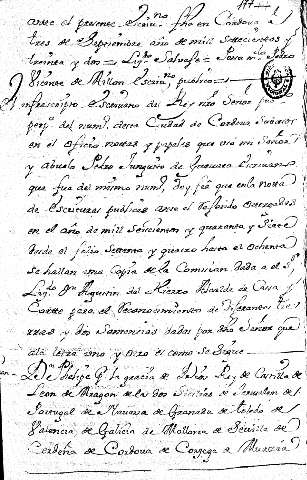 ante el presente Escriu.no fho en Cordova a
tres de Septiembre año de mill Settecientos y
treinta y dos = Liz.do
Vicente de escriu.no publico =
Infrascripto escriuano del Rey nro Señor pu.co
perp.o del num.o desta Ciudad de Cordova Subcesor
en el oficio notas y papeles que
y abuelo Pedro Junguito de Guevara Escriuano
que fue del mismo num.o doy fee que en la notta
de escrituras publicas ante el
en el año de mill Seiscientos y quarenta y Siete
desde el folio Settenta y quatro hasta el ochenta
se hallan una Copia de la Comision dada a el S.r
Liz.do Dn Agustin del Hierro Alcalde de Casa y
Corte para el Reconocimiento de diferentes tie
rras y dos Sentencias dadas por dho Señor que
ala letra uno y otro es como se Sigue
Dn Phelipe P.r la gracia de Dios Rey de Castilla de
Leon de Aragon de las dos Sicilias de Jerusalem de
Portugal de Navarra de Granada de Toledo de
Valencia de Galicia de Mallorca de Sevilla de
Cerdeña de Cordova de Corzega de Murzia